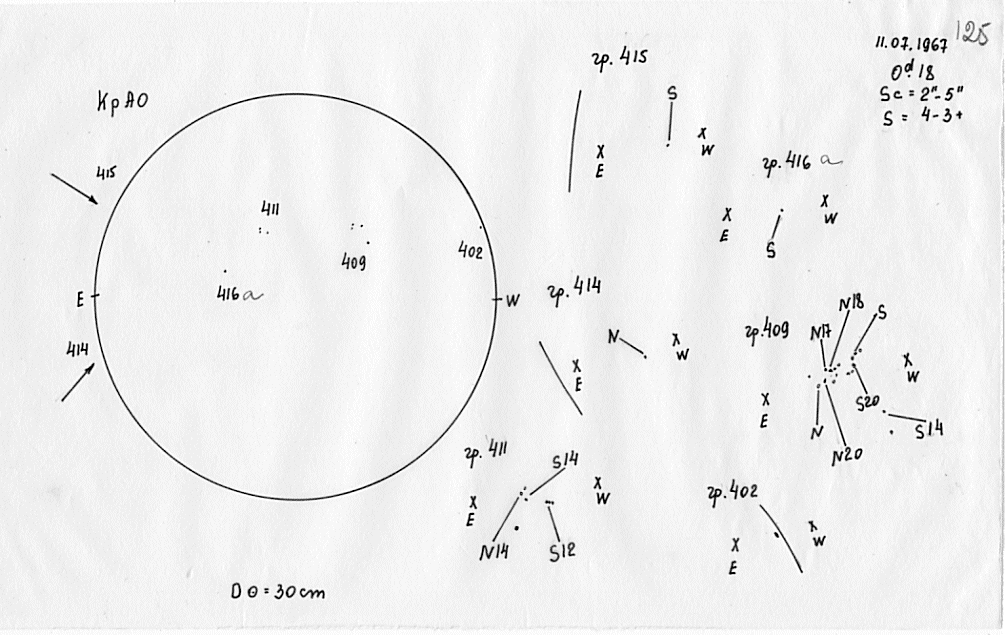 125
11.07.1967
0ᵈ.18
Sc = 2"-5"
S = 4-3+
КрАО
415
411
409
402
416а
E
W
414
D⊙ = 30cm
гр. 415
S
X
E
X
W
гр. 416 а
X
E
X
W
S
гр. 414
N
X
W
X
E
гр. 409
N17
N18
S
X
W
X
E
S20
S14
N
N20
гр. 411
S14
X
E
X
W
N14
S12
гр. 402
X
W
X
E